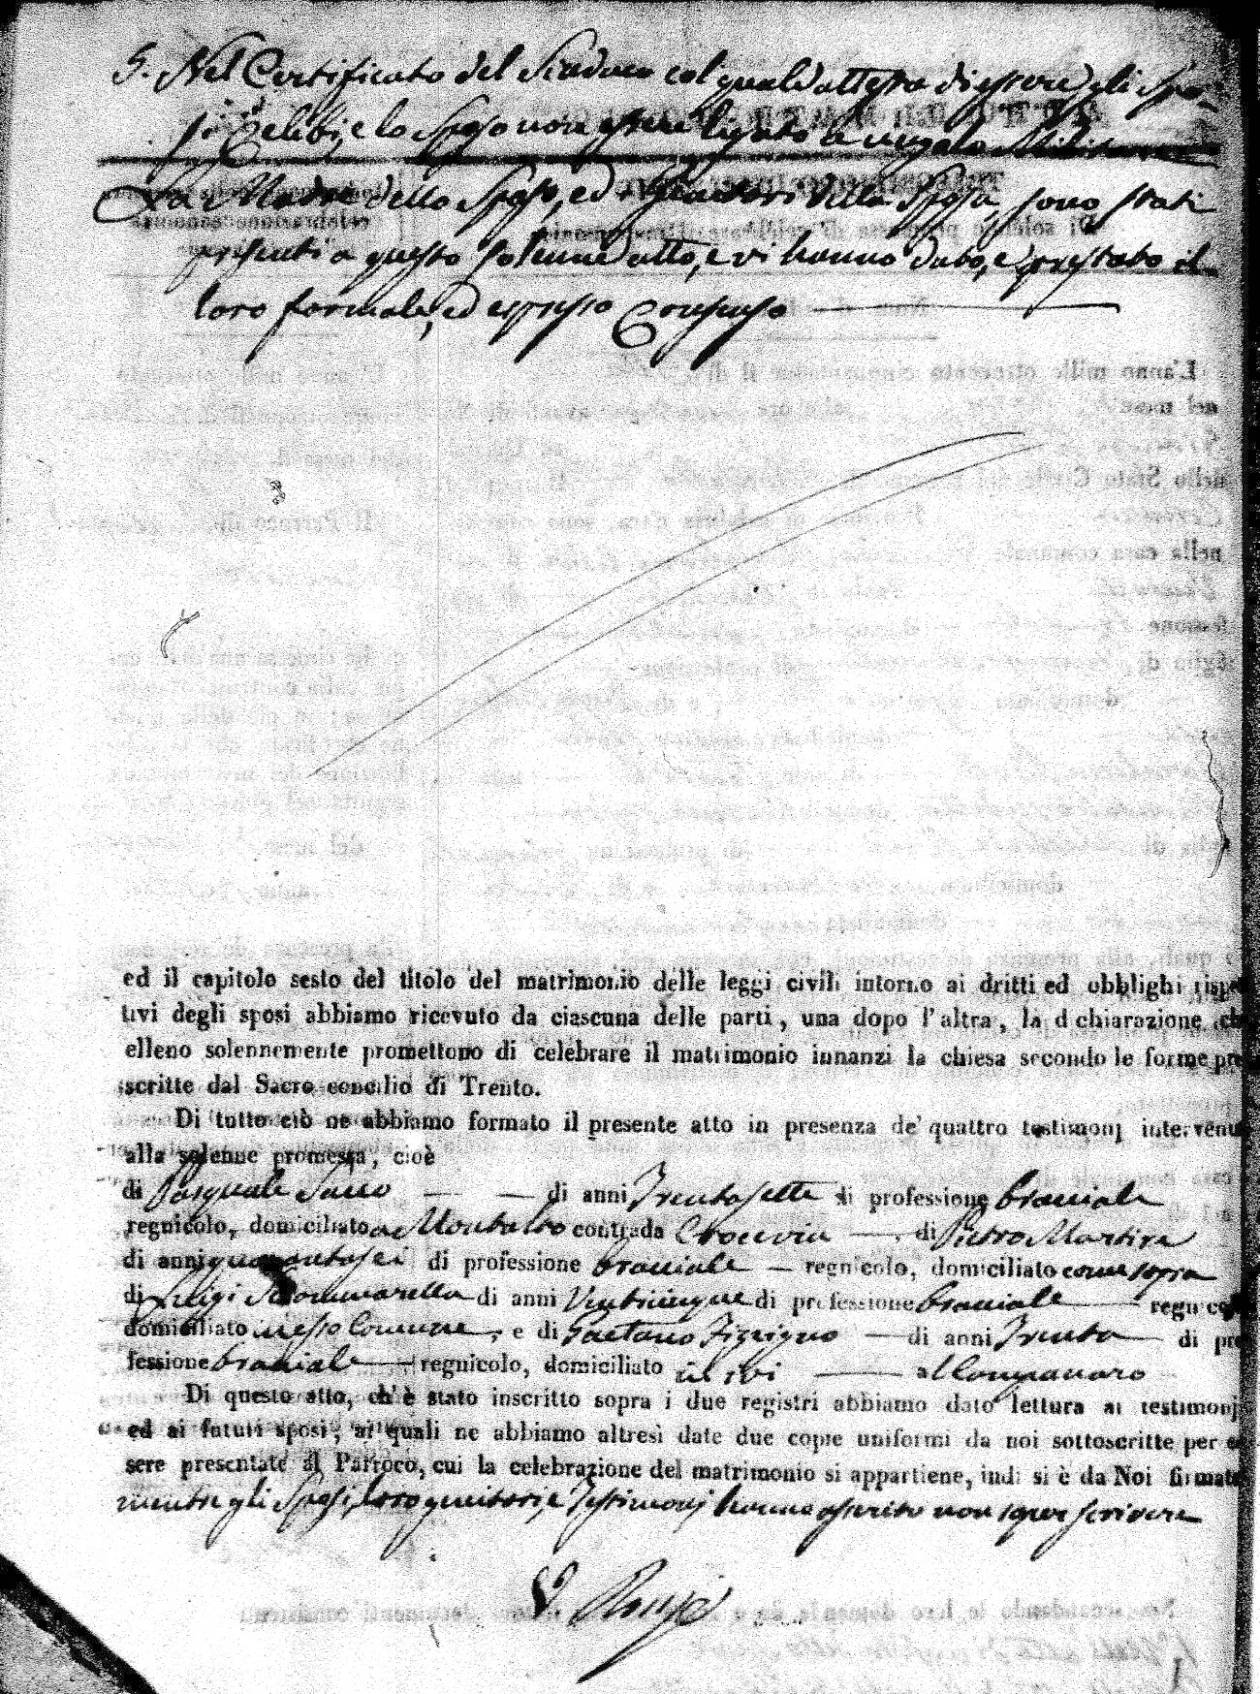 5. Nel Certificato del Sindaco col quale attesta di essere gli Spo-
si Celibi, e lo Sposo non essere legato a
La Madre dello Sposo, ed i Genitori della Sposa, sono stati
presenti a questo solenne atto, e vi hanno dato, e prestato il
loro formale, ed espresso Consenso
ed il capitolo sesto del titolo del matrimonio delle leggi civili intorno ai dritti ed obblighi rispe
tivi degli sposi abbiamo ricevuto da ciascuna delle parti, una dopo l'altra, la d chiarazione, ch
elleno solennemente promettono di celebrare il matrimonio innanzi la chiesa secondo le forme pre
scritte dal Sacro concilio di Trento.
Di tutto ciò ne abbiamo formato il presente atto in presenza de' quattro testimonj intervenu
alla solenne promessa, cioè
di Pasquale Sacco di anni Trentasette di professione bracciale
regnicolo, domiciliato a Montalto contrada Crocevia di Pietro Martire
di anni quarantasei di professione bracciale regnicolo, domiciliato come sopra
di Luigi Scommarella di anni Venticinque di professione bracciale regnicol
domiciliato in esso Comune, e di Gaetano di anni Trenta di pro
fessione bracciale regnicolo, domiciliato ivi al Campanaro
Di questo atto, ch'è stato inscritto sopra i due registri abbiamo dato lettura ai testimonj
ed ai futuri sposi, ai quali ne abbiamo altresì date due copie uniformi da noi sottoscritte per es
sere presentate al Parroco, cui la celebrazione del matrimonio si appartiene, indi si è da Noi firmato
mentre gli Sposi, loro genitori, e Testimonj hanno asserito non saper scrivere